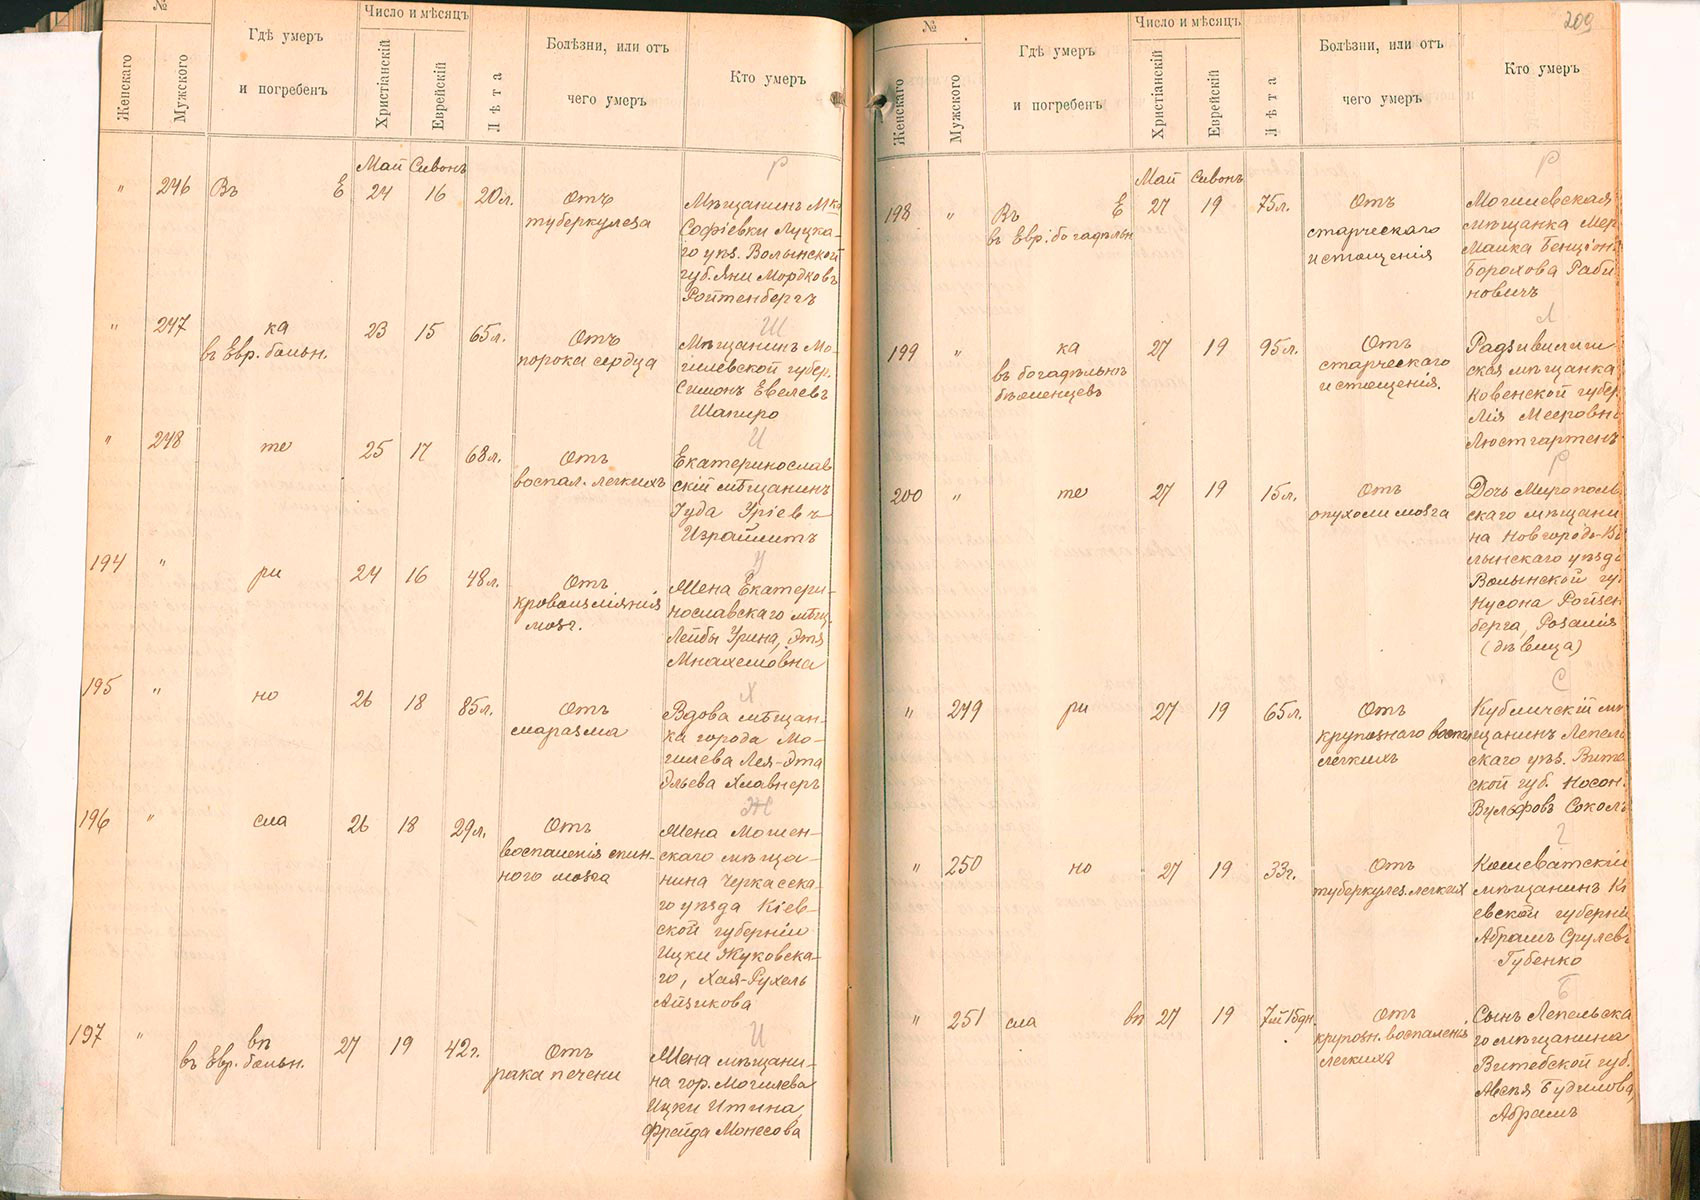 №
Число и мѣсяцъ
Женскаго
Мужского
Гдѣ умеръ
и погребенъ
Христіанскій
Еврейскій
Лѣта
Болѣзни, или отъ
чего умеръ
Кто умеръ
Май Сивонъ
Р
" 246 Въ Е 24 16 20л.
Отъ
туберкулеза
Мѣщанинъ Мка
Софіевки Луцка-
го уѣз. Волынской
губ. Яни Мордковъ
Ройтенбергъ
Ш
" 247 ка 23 15 65л.
въ Евр. больн.
Отъ
порока сердца
Мѣщанинъ Мо-
гилевской губер.
Симонъ Евелевъ
Шапиро
И
" 248 те 25 17 68л.
Отъ
воспал. легкихъ
Екатеринослав
скій мѣщанинъ
Іуда Уріевъ
Израилитъ
У
194 " ри 24 16 48л.
Отъ
кровоизліянія
мозг.
Жена Екатери-
нославскаго мѣщ.
Лейбы Урина, Этя
Мнахемовна
Х
195 " но 26 18 85л.
Отъ
маразма
Вдова мѣщан-
ка города Мо-
гилева Лея-Эта
Эльева Хлавнеръ
Ж
196 " сла 26 18 29л.
Отъ
воспаленія спин-
ного мозга
Жена Мошен-
скаго мѣща-
нина Черкасска-
го уѣзда Кіев-
ской губерніи
Ицки Жуковска-
го, Хая-Рухель
Айзикова
И
197 " вѣ 27 19 42г.
въ Евр. больн.
Отъ
рака печени
Жена мѣщани-
на гор. Могилева
Ицки Итина,
Фрейда Монесова
209
№
Число и мѣсяцъ
Женскаго
Мужского
Гдѣ умеръ
и погребенъ
Христіанскій
Еврейскій
Лѣта
Болѣзни, или отъ
чего умеръ
Кто умеръ
Май Сивонъ
Р
198 " Въ Е 27 19 75л.
въ Евр. богадѣльн
Отъ
старческаго
истощенія
Могилевская
мѣщанка Мер
Малка Бенціон
Борохова Раби
новичъ
Л
199 " ка 27 19 95л.
въ богадѣльнѣ
бѣженцевъ
Отъ
старческаго
истощенія.
Радзивилиш
ская мѣщанка
Ковенской губер
Лія Мееровна
Люстгартенъ
Р
200 " те 27 19 15л.
Отъ
опухоли мозга
Дочь Мирополь
скаго мѣщани
на Новгородъ-Во
лынскаго уѣзда
Волынской гу
Нусона Ройзен
берга, Розалія
(дѣвица)
С
" 249 ри 27 19 65л.
Отъ
крупознаго воспал
легкихъ
Кубличскій мѣ
щанинъ Лепель
скаго уѣз. Витеб
ской губ. Носон
Вульфовъ Соколъ
Г
" 250 но 27 19 33г.
Отъ
туберкулез. легких
Кошеватскій
мѣщанинъ Кі
евской губерніи
Абрамъ Срулевъ
Губенко
Б
" 251 сла вѣ 27 19 7м 15дн.
Отъ
крупозн. воспаленія
легкихъ
Сынъ Лепельска
го мѣщанина
Витебской губ.
Будилова,
Абрамъ